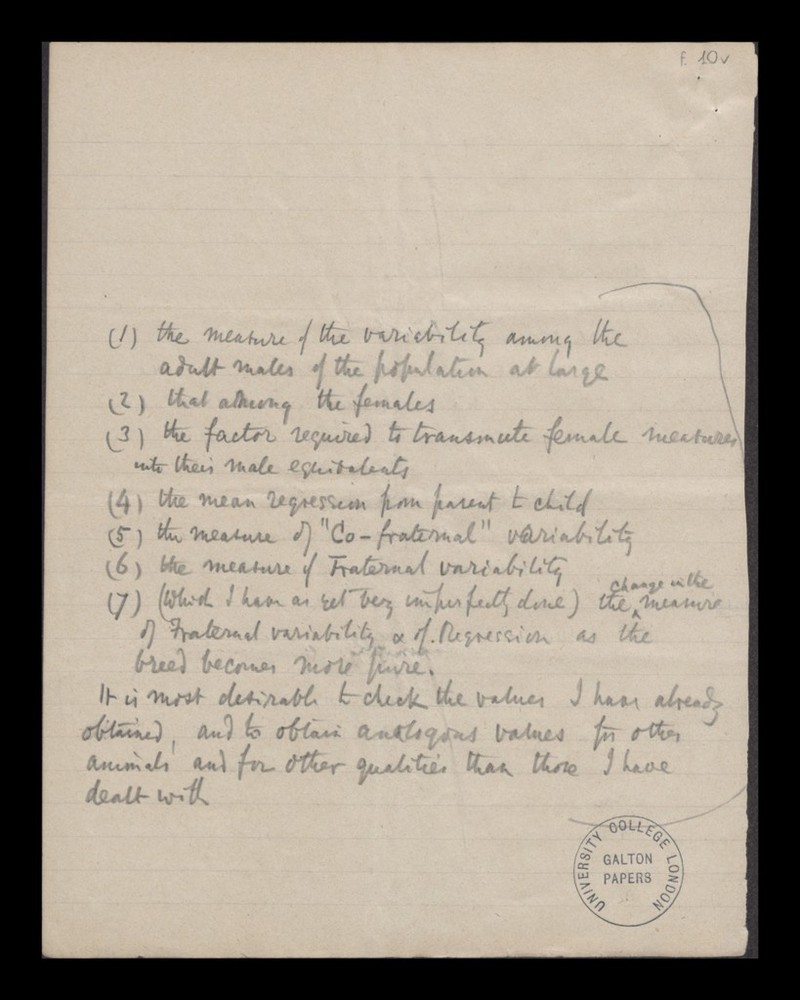 f. 10v
(1) the measure of the variability among the
adult males of the population at large
(2) that among the females
(3) the factor required to transmute female measures
into their male equivalents
(4) the mean regression from parent to child
(5) the measure of "Co-fraternal" variability
(6) the measure of Fraternal variability
change in the
(7) (Which I have as yet very imperfectly done) the measure
of Fraternal variability & of Regression as the
breed becomes more pure.
It is most desirable to check the values I have already
obtained, and to obtain analogous values for other
animals and for other qualities than those I have
dealt with
UNIVERSITY COLLEGE LONDON
GALTON
PAPERS